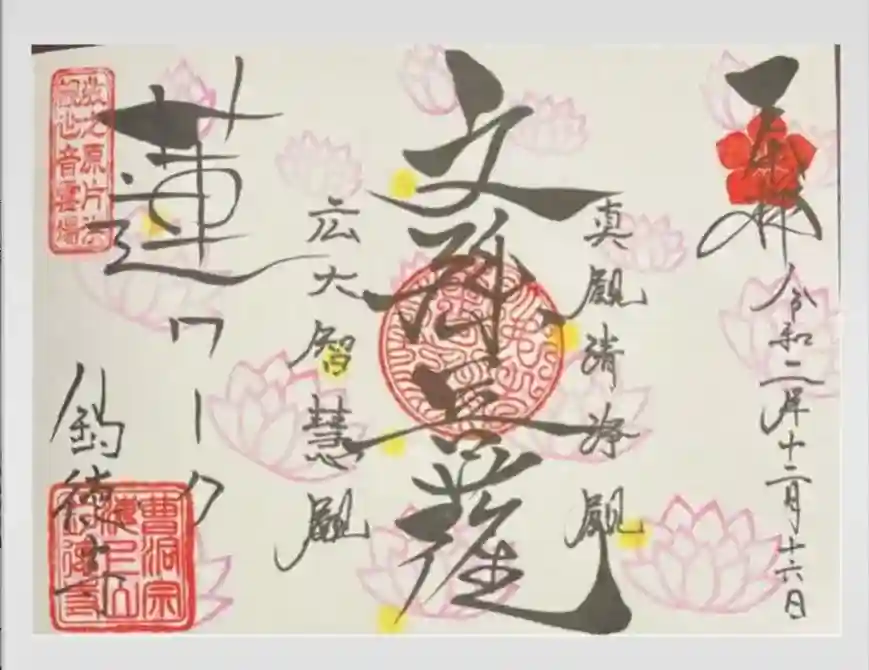 奉拝
令和二年十二月十六日
真観清浄観
文殊菩薩
広大智慧観
蓮ワーク
釣徳寺
牧之原片浜
観世音霊場
曹洞宗